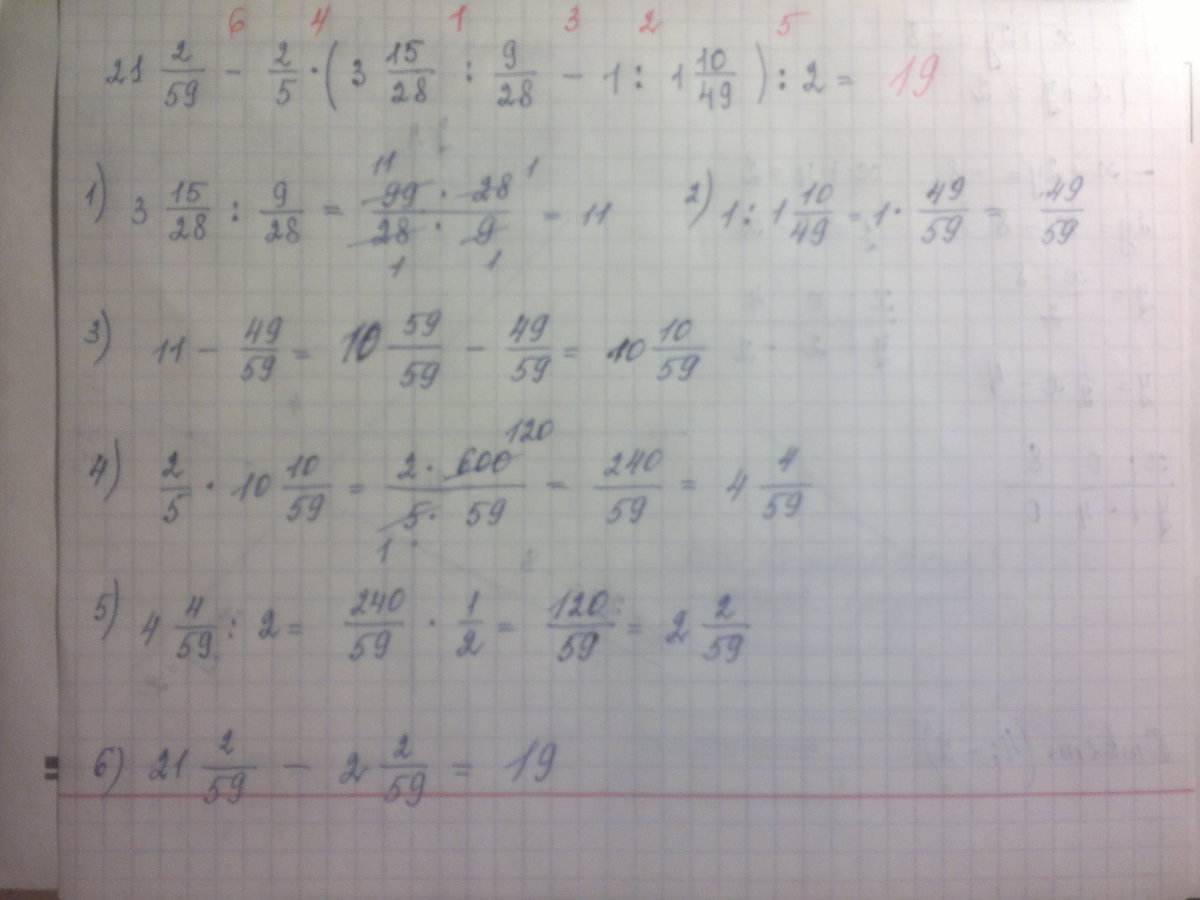 6 4 1 3 2 5
21 2/59 - 2/5 · (3 15/28 : 9/28 - 1 : 1 10/49) : 2 = 19
1) 3 15/28 : 9/28 = 99 · 28 / 28 · 9 = 11 2) 1 : 1 10/49 = 1 · 49/59 = 49/59
11 1
1 1
3) 11 - 49/59 = 10 59/59 - 49/59 = 10 10/59
4) 2/5 · 10 10/59 = 2 · 600 / 5 · 59 = 240/59 = 4 4/59
120
1
5) 4 4/59 : 2 = 240/59 · 1/2 = 120/59 = 2 2/59
6) 21 2/59 - 2 2/59 = 19